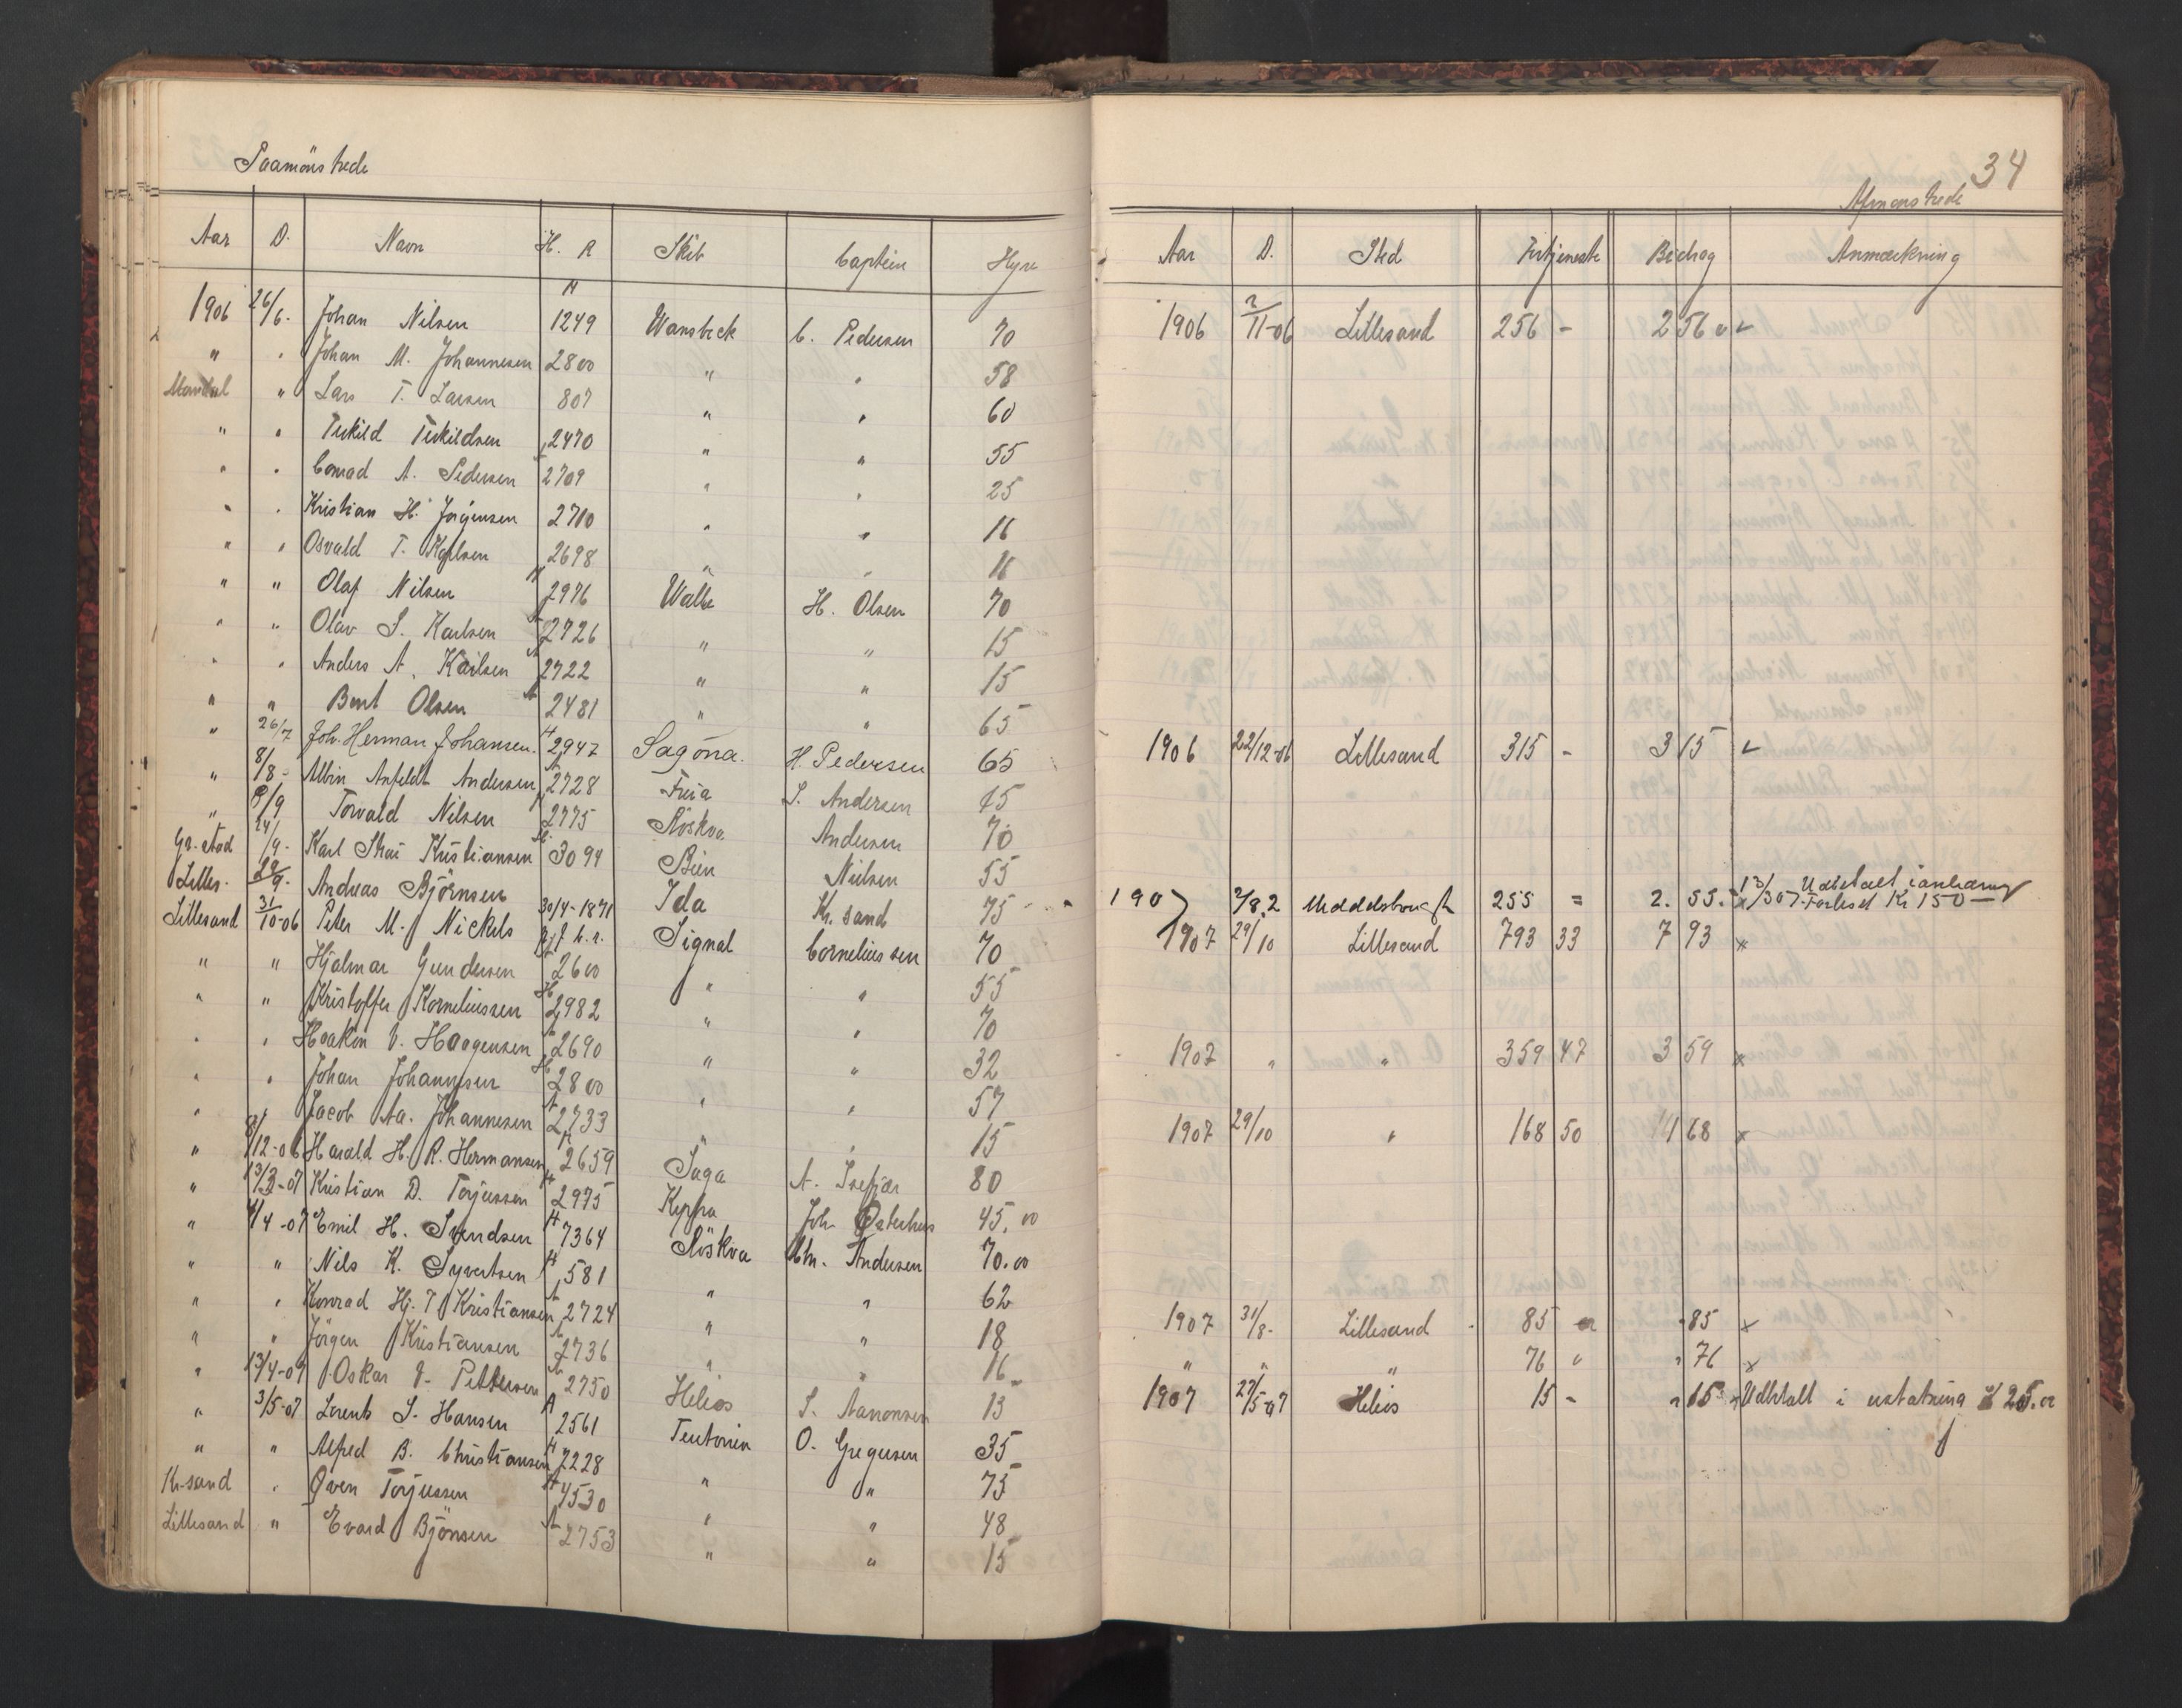 Paamönstrede
Aar D. Navn H. R Skib Captein Hyre
1906 26/6. Johan Nilsen H 1249 Wansbeck C. Pedersen 70
" " Johan M. Johannesen 2800 " " 58
Mandal " Lars T. Larsen 807 " " 60
" " Terkild Terkildsen 2470 " " 55
" " Conrad A. Pedersen 2709 " " 25
" " Kristian H. Jörgensen 2710 " " 16
" " Osvald T. Karlsen 2698 " " 16
" " Olaf Nilsen 2976 H. Olsen 70
" " Olav S. Karlsen 2726 " " 15
" " Anders A. Karlsen 2722 " " 15
" " Bent Olsen 2481 " " 65
" 26/7 Joh. Herman Johansen. H 2947 Sagona. H. Pedersen 65
" 8/8- Albin Anfeldt Andersen 2728 Freia S. Andersen 15
" 8/9 Torvald Nilsen 2775 Röskva Andersen 70
Gr. stad 24/9- Karl Skai Kristiansen 3094 Bien Nielsen 55
Lilles. 29/9. Andreas Björnsen 30/4-1871 Ida Kr. sand 75
Lillesand 31/10-06 Peter M. Nickels Signal Corneliussen 70
" " Hjalmar Gundersen 2600 " " 55
" " Kristoffer Korneliussen H 2982 " " 70
" " Haakon V. Haagensen 2690 " " 32
" " Johan Johannesen H 2800 " " 57
" " Jacob Aa. Johannesen A 2733 " " 15
" 8/12-06 Harald H. R. Hermansen 2659 Saga A. Isefjær 80
" 13/3-07 Kristian D. Torjussen H 2975 Keppa Joh. Osterhus 45.00
" 4/4-07 Emil H. Svendsen H 7364 Röskva Chr. Andersen 70.00
" " Nils K. Syvertsen H 581 " " 62
" " Konrad Hj. T. Kristiansen A 2724 " " 18
" " Jörgen Kristiansen A 2736 " " 16
" 13/4-07 Oskar V. Pettersen A 2750 Helios S. Aanonsen 15
" 3/5-07 Lorents S. Hansen A 2561 Teutonia O. Gregersen 35
" " Alfred B. Christiansen H 7228 " " 75
Kr.sand " Oven Torjussen H 4530 " " 48
Lillesand " Evard Björnsen A 2753 " " 15
34
Afmönstrede
Aar D. Sted Fortjeneste Bidrag Anmærkning
1906 2/11-06 Lillesand 256 - 2 56
1906 22/12-06 Lillesand 315 - 3 15
1907 255 = 2. 55. 13/3 07 Forlist Kr 150
1907 29/10 Lillesand 793 33 7 93 x
1907 " " 359 47 3 59 x
1907 29/10 " 168 50 1 68 x
1907 31/8- Lillesand 85 " 85 x
" " " 76 " " 76 x
1907 27/5-07 Helios 15 - " 15 Udbetalt i Kr 25.00